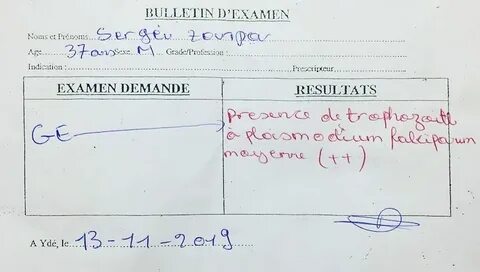 BULLETIN D'EXAMEN
Noms et Prénoms Sergiu Zourpa
Age 37ans sexe. M Grade/Profession :
Indication : Prescripteur
EXAMEN DEMANDE RESULTATS
GE Presence de trophozoite
à plasmodium falciparum
moyenne (++)
A Ydé, le 13-11-2019